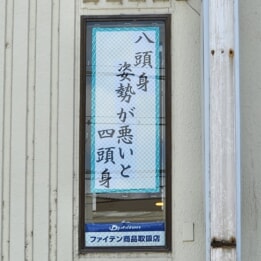 八頭身
姿勢が悪いと
四頭身
ファイテン商品取扱店